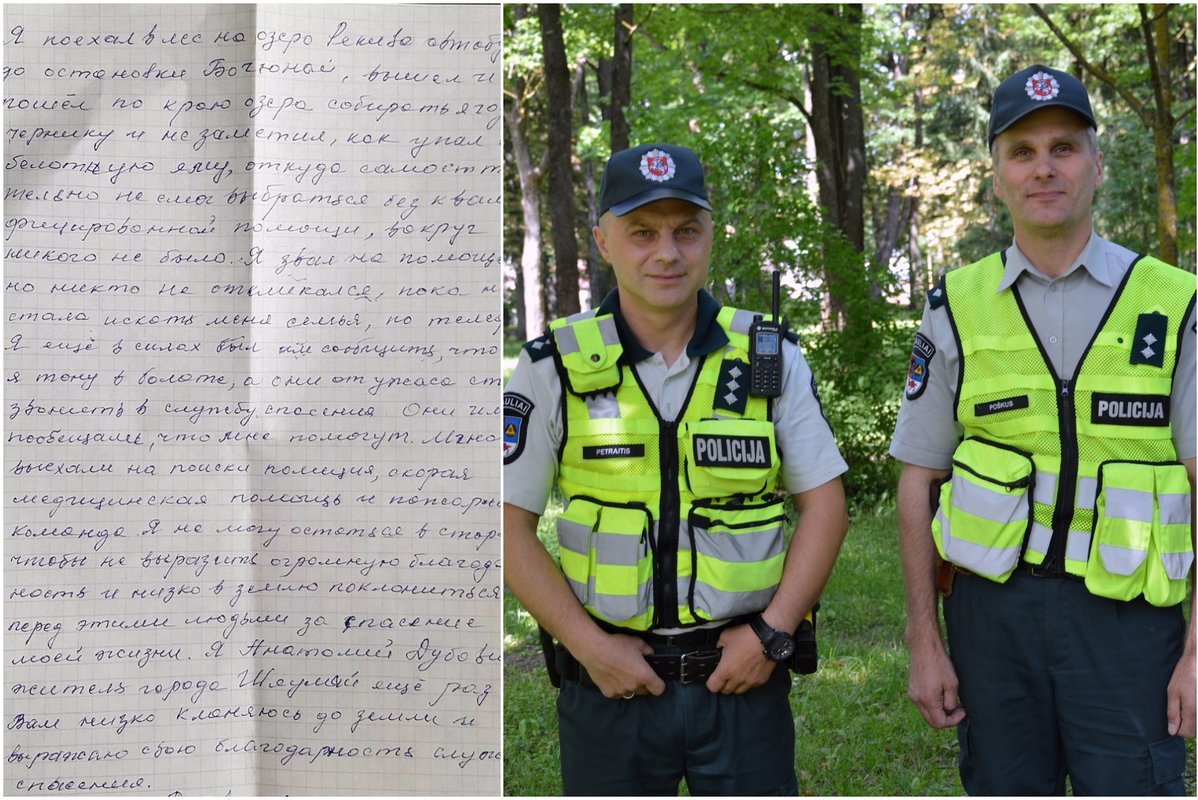 Я поехал в лес на озеро Рекива автобу
до остановки Бачюнай, вышел и
пошёл по краю озера собирать яго
чернику и не заметил, как упал
болотную яму, откуда самостоя
тельно не смог выбраться без квали
фицированной помощи, вокруг
никого не было. Я звал на помощь
но никто не откликался, пока н
стала искать меня семья, по телеф
Я ещё в силах был им сообщить, что
я тону в болоте, а они от ужаса ст
звонить в службу спасения. Они им
пообещали, что мне помогут. Мной
выехали на поиски полиция, скорая
медицинская помощь и пожарн
команда. Я не могу остаться в стор
чтобы не выразить огромную благода
ность и низко в землю поклониться
перед этими людьми за спасение
моей жизни. Я Анатолий Дубови
житель города Шяуляй ещё раз
Вам низко кланяюсь до земли и
выражаю свою благодарность служ
спасения.
PETRAITIS
POLICIJA
ULIAI
MOTOROLA
POŠKUS
POLICIJA
ULIAI